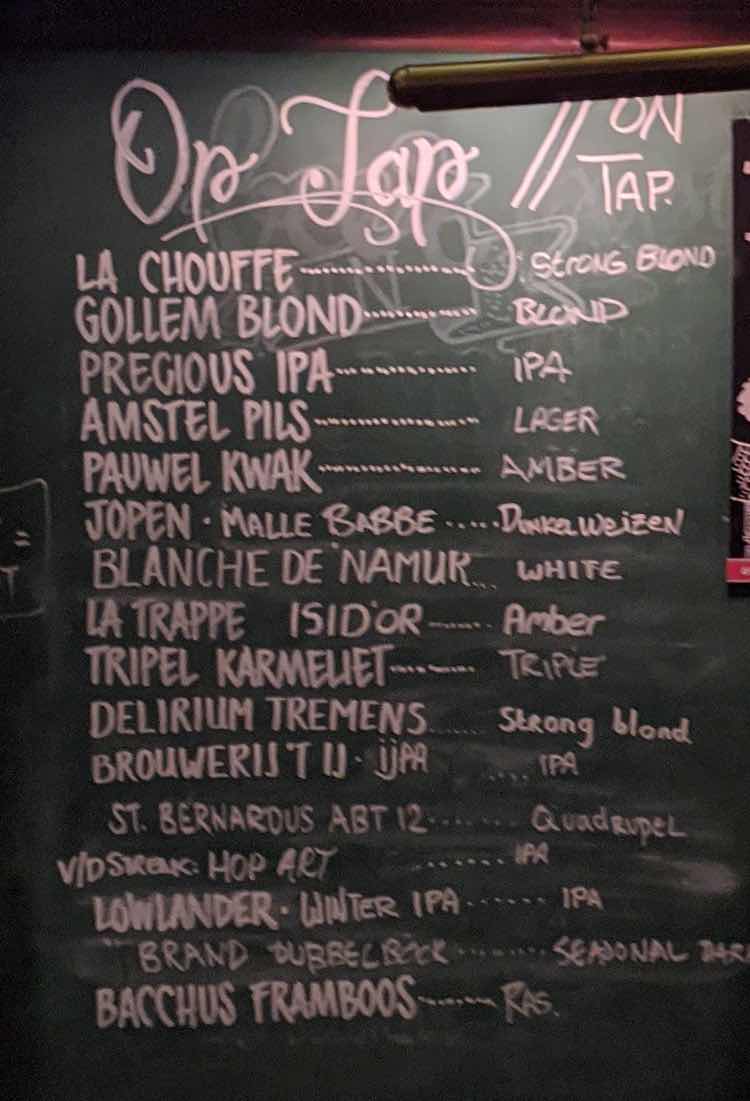 Op Tap // ON TAP.
LA CHOUFFE ................ STRONG BLOND
GOLLEM BLOND ............ BLOND
PRECIOUS IPA .............. IPA
AMSTEL PILS ................ LAGER
PAUWEL KWAK ................ AMBER
JOPEN · MALLE BABBE ..... DINKELWEIZEN
BLANCHE DE NAMUR... WHITE
LA TRAPPE ISID'OR ....... Amber
TRIPEL KARMELIET ......... TRIPLE
DELIRIUM TREMENS ...... Strong blond
BROUWERIJ 'T IJ · IJAA .... IPA
ST. BERNARDUS ABT 12 ....... QUADRUPEL
V/D STREEK: HOP ART ....... IPA
LOWLANDER · WINTER IPA ...... IPA
BRAND DUBBELBOCK ........ SEASONAL DARK
BACCHUS FRAMBOOS ........ RAS.